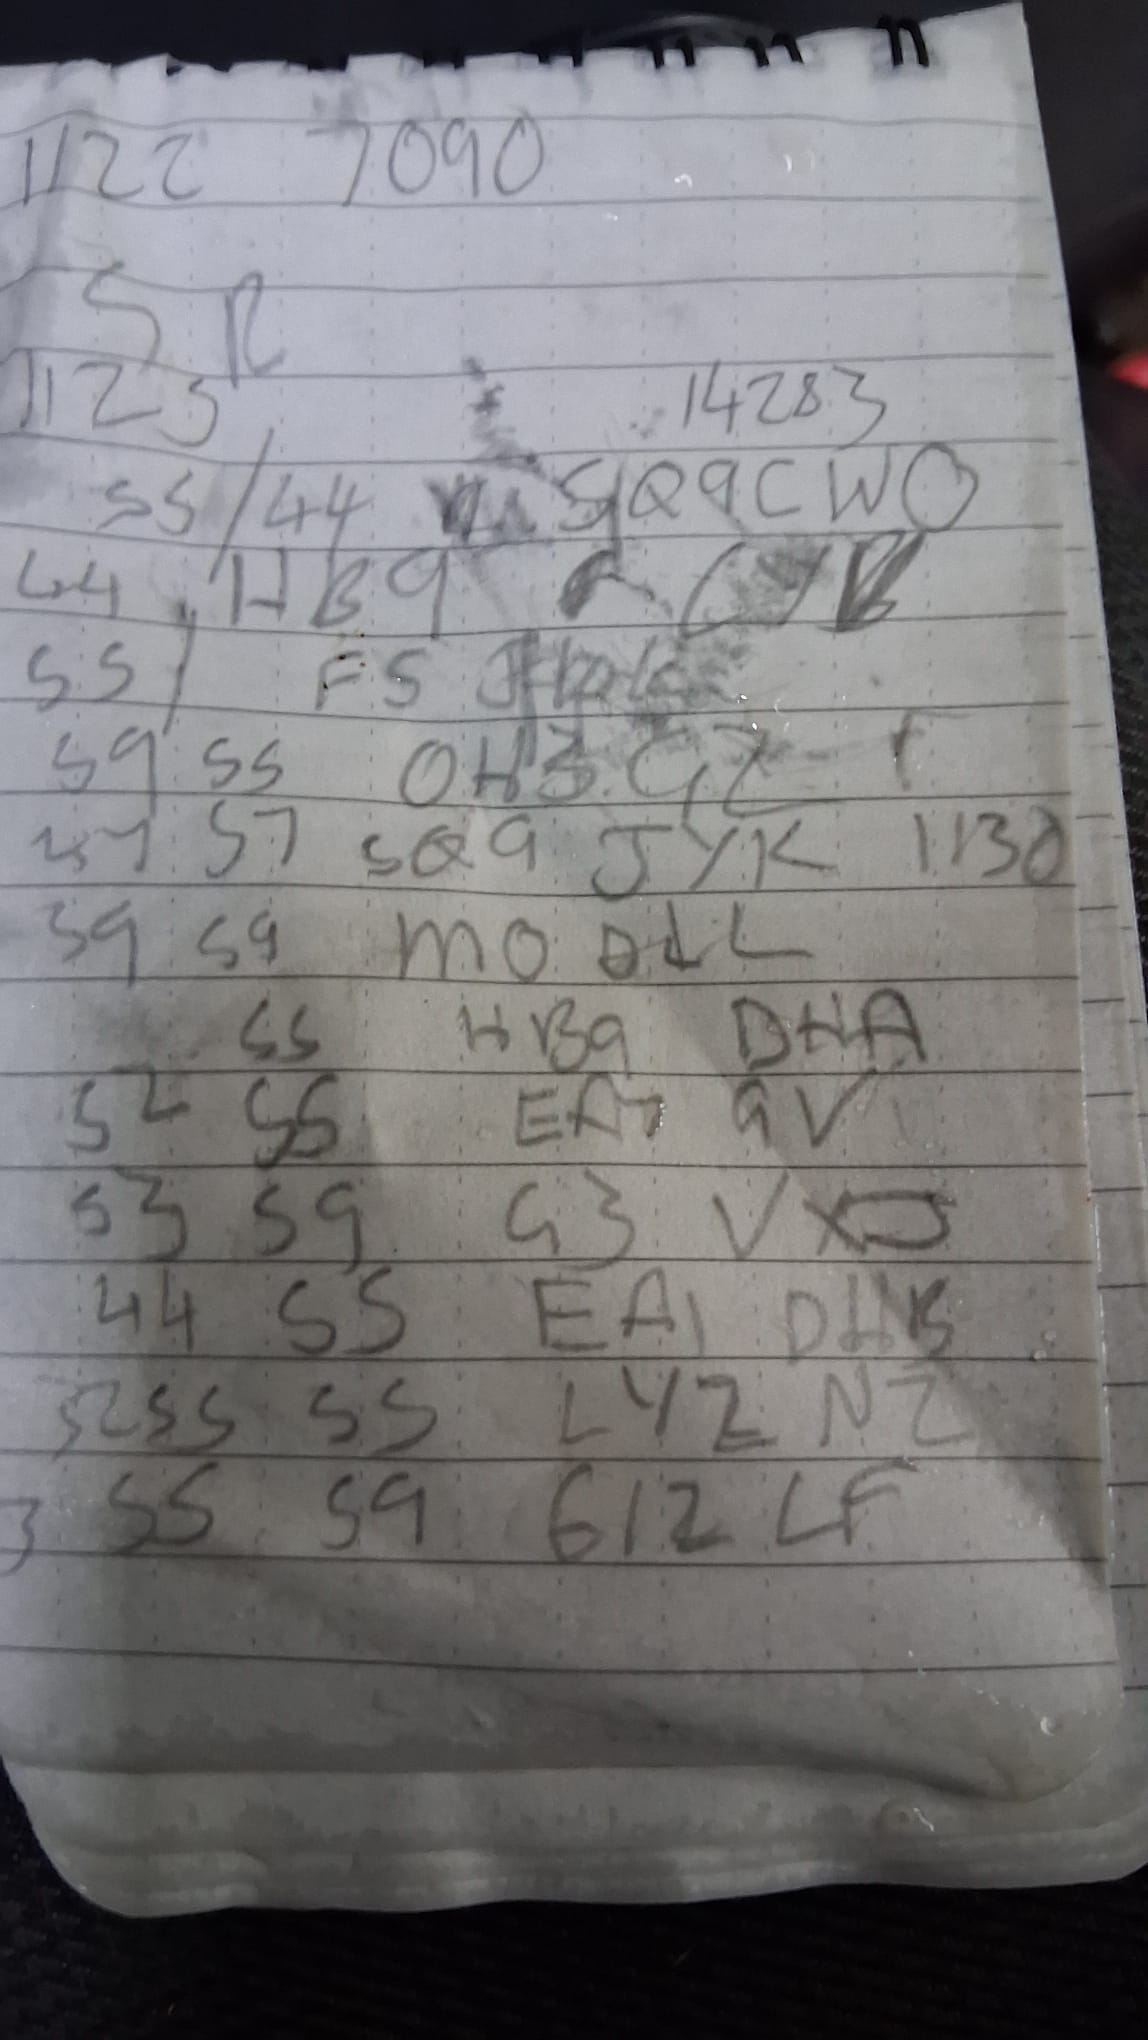 1122 7090
S R
1123 14283
55/44 SQ9CWO
44 HB9
55/ F5
59 55 OH3 GZ
57 SQ9 JYK 1130
59 59 MO DLL
55 HB9 DHA
52 55 EA7 GV
53 59 G3 VXJ
44 55 EA1 DHB
5255 55 LY2 NZ
3 55 59 612 LF